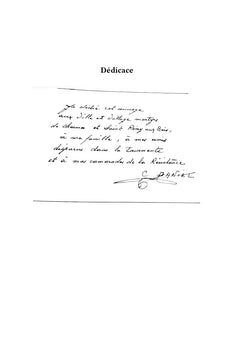 Dédicace
Je dédie cet ouvrage
aux Ville et Village martyrs
de                et Saint
à ma famille, à mes amis
disparus dans la tourmente
et à mes camarades de la Résistance